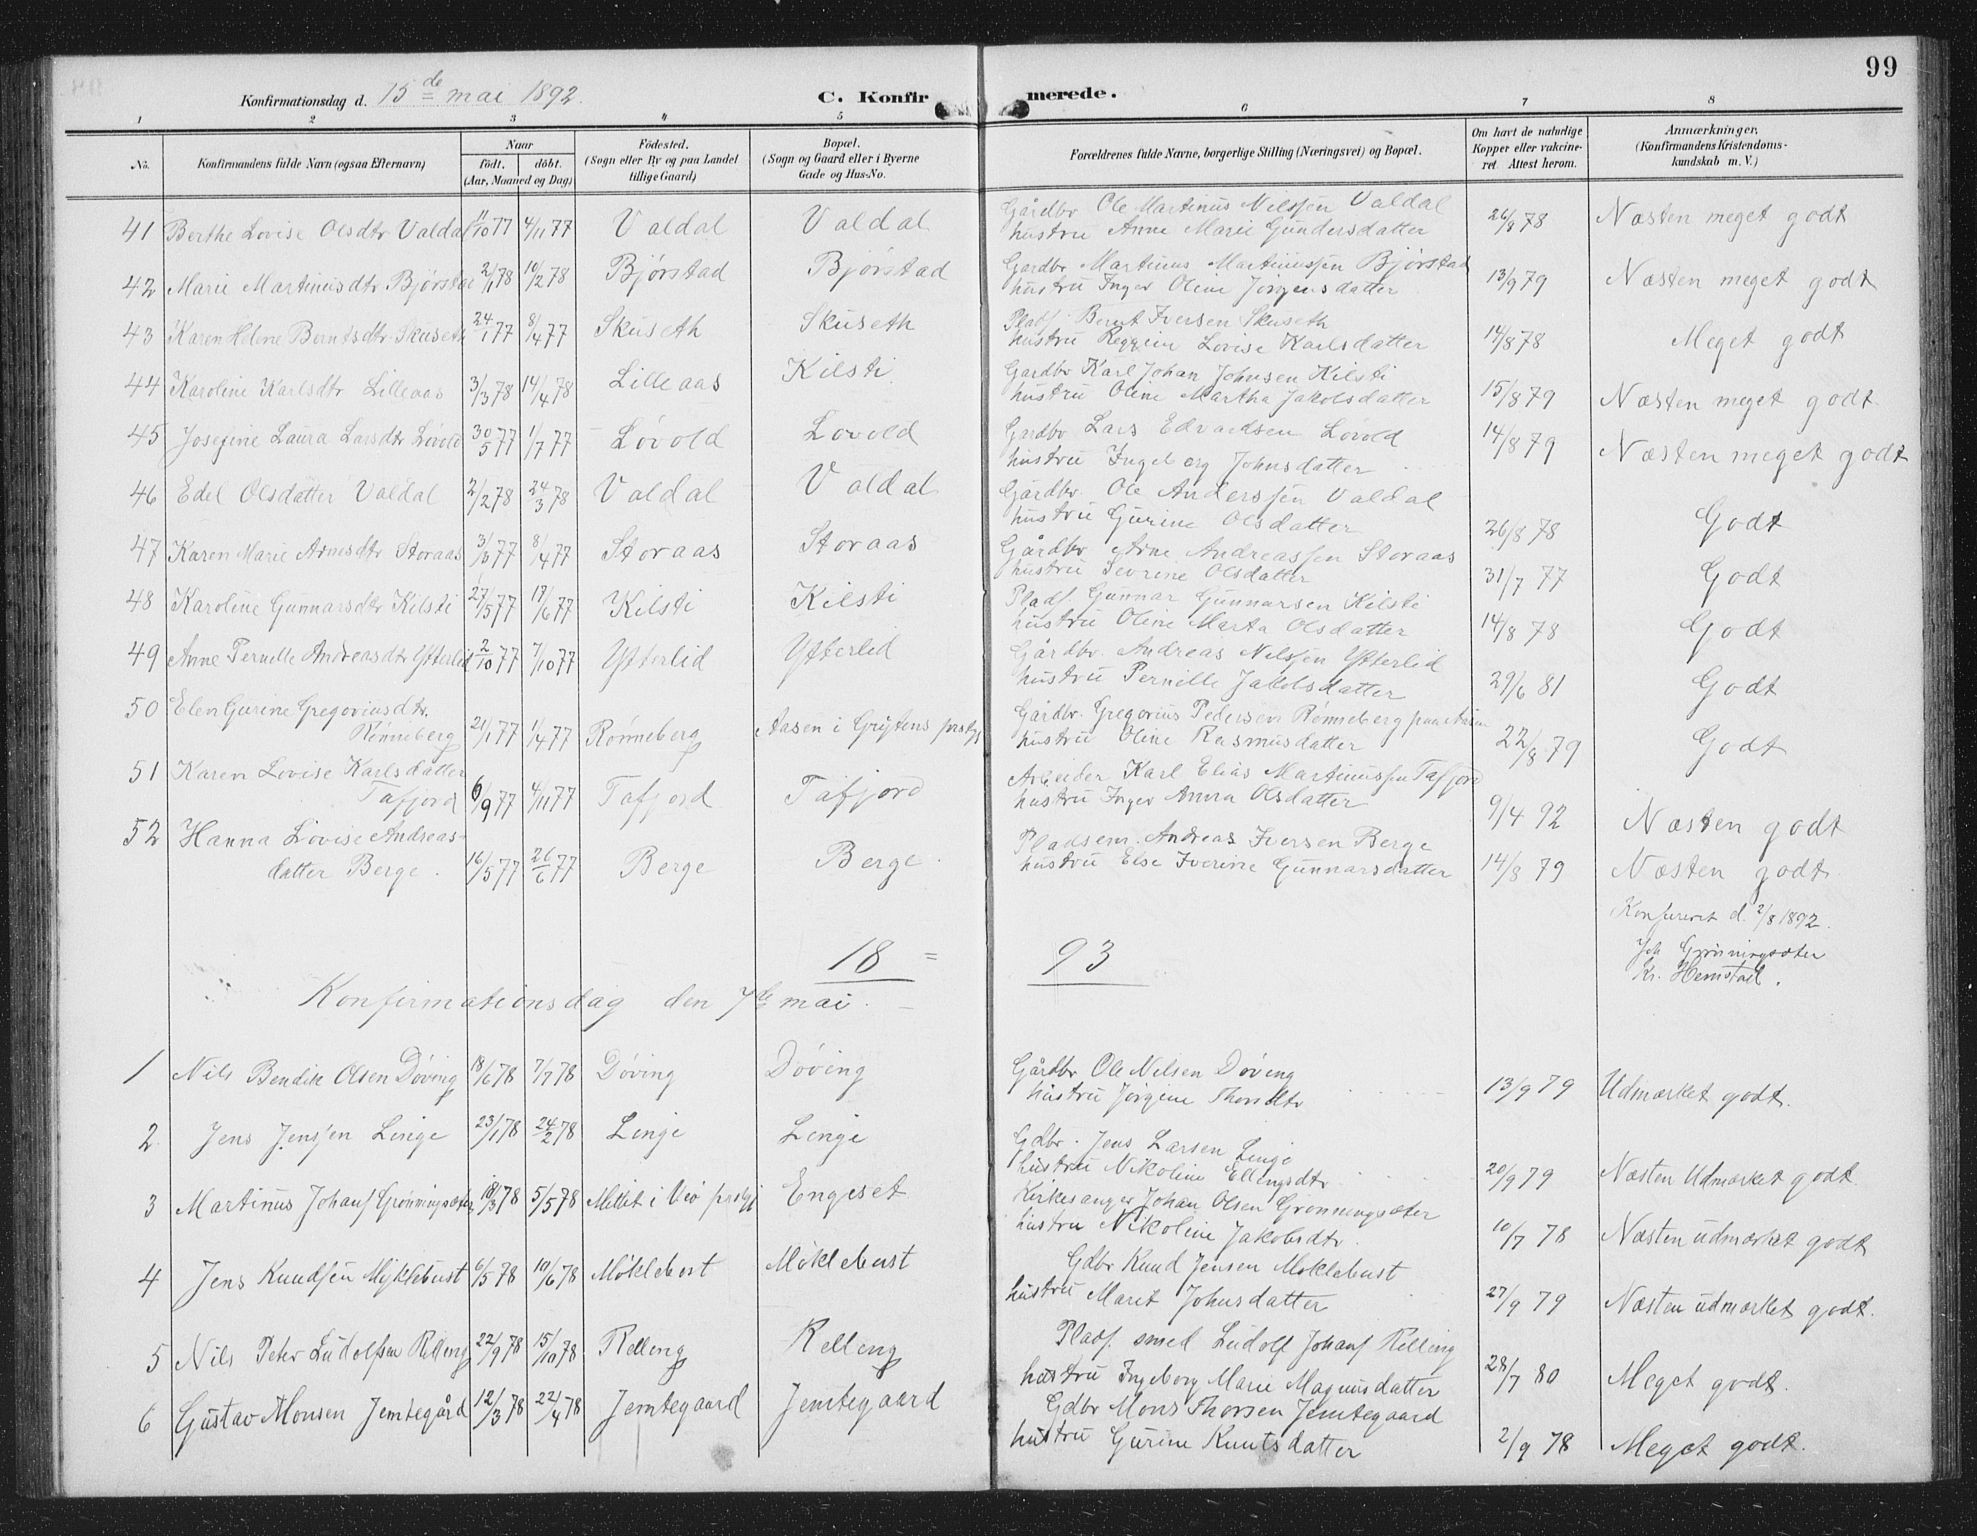 99
Konfirmationsdag d. 15de mai 1892. C. Konfirmerede.
1 2 3 4 5 6 7 8
No. Konfirmandens fulde Navn (ogsaa Efternavn) Naar født. døbt. (Aar, Maaned og Dag) Fødested. (Sogn eller By og paa Landet tillige Gaard) Bopæl. (Sogn og Gaard eller i Byerne Gade og Hus-No. Forældrenes fulde Navne, borgerlige Stilling (Næringsvei) og Bopæl. Om havt de naturlige Kopper eller vakcineret Attest herom. Anmærkninger. (Konfirmandens Kristendomskundskab m. V.)
41 Berthe Lovise Olsdtr Valdal 11/10 77 4/11 77 Valdal Valdal Gårdbr Ole Martinus Nilssen Valdal
hustru Anne Marie Gundersdatter 26/8 78 Næsten meget godt
42 Marie Martinusdtr Bjørstad 2/1 78 10/2 78 Bjørstad Bjørstad Gardbr Martinus Martinussen Bjørstad
hustru Inger Oline Jørgensdatter 13/9 79 Næsten meget godt
43 Karen Heline Berntsdtr Skuseth 24/1 77 8/4 77 Skuseth Skuseth Plads. Bernt Iversen Skuseth
hustru Lovise Karlsdatter 14/8 78 Meget godt
44 Karoline Karlsdtr Lilleaas 3/3 78 14/4 78 Lilleaas Kilsti Gardbr Karl Johan Johnsen Kilsti
hustru Oline Martha Jakobsdatter 15/8 79 Næsten meget godt
45 Josefine Laura Larsdtr Løvold 30/5 77 1/7 77 Løvold Lovold Gardbr Lars Edvardsen Lovold
hustru Ingeborg Johnsdatter 14/8 79 Næsten meget godt
46 Edel Olsdatter Valdal 2/2 78 24/3 78 Valdal Valdal Gårdbr. Ole Anderssen Valdal
hustru Gurine Olsdatter 26/8 78 Godt
47 Karen Marie Arnesdtr Storaas 3/3 77 8/4 77 Storaas Storaas Gårdbr Arne Andreassen Storaas
hustru Severine Olsdatter 31/7 77 Godt
48 Karoline Gunnarsdtr Kilsti 27/5 77 17/6 77 Kilsti Kilsti Plads. Gunnar Gunnarsen Kilsti
hustru Oline Marta Olsdatter 14/8 78 Godt
49 Anne Pernille Andreasdtr Ytterlid 2/10 77 7/10 77 Ytterlid Ytterlid Gårdbr. Andreas Nilssen Ytterlid
hustru Pernille Jakobsdatter 29/6 81 Godt
50 Elen Gurine Gregoriusdtr.
Rønneberg 21/1 77 1/4 77 Rønneberg Aasen i Grytens prstgj Gårdbr. Gregorius Pedersen Rønneberg paa Aasen
hustru Oline Rasmusdatter 22/8 79 Godt
51 Karen Lovise Karlsdatter
Tafjord 6/9 77 4/11 77 Tafjord Tafjord Arbeider Karl Elias Martinussen Tafjord
hustru Inger Anna Olsdatter 9/4 92 Næsten godt
52 Hanna Lovise Andreas-
datter Berge. 16/5 77 26/6 77 Berge Berge. Pladsem. Andreas Iversen Berge
hustru Else Iverine Gunnarsdatter 14/8 79 Næsten godt.
Konfereret d. 2/8 1892.
Joh Grønningsæter
Kr. Hemstad.
18 = 93
Konfirmationsdag den 7de mai. –
1 Nils Bendik Olsen Døving 18/6 78 7/7 78 Døving Døving Gårdbr Ole Nilsen Døving
hustru Jørgine Thorsdtr 13/9 79 Udmærket godt.
2 Jens Jenssen Linge 23/1 78 24/2 78 Linge Linge Gdbr. Jens Larsen Linge
hustru Nikoline Ellingsdtr 20/9 79 Næsten Udmærket godt.
3 Martinus Johans Grønningsæter 18/3 78 5/5 78 Millet i Veø prstgj Engeset Kirkesanger Johan Olsen Grønningsæter
hustru Nikoline Jakobsdtr. 10/7 78 Næsten udmærket godt
4 Jens Knudsen Myklebust 6/5 78 10/6 78 Møklebost Møklebust Gdbr Knud Jensen Møklebust
hustru Marit Johnsdatter 27/9 79 Næsten udmærket godt.
5 Nils Peter Ludolfsen Relling 22/9 78 15/10 78 Relling Relling Plads. smed Ludolf Johans Relling
hustru Ingeborg Marie Magnusdatter 28/7 80 Meget godt.
6 Gustav Monsen Jemtegård 12/3 78 22/4 78 Jemtegaard Jemtegaard Gdbr Mons Thorsen Jemtegaard
hustru Gurine Knutsdatter 2/9 78 Meget godt.